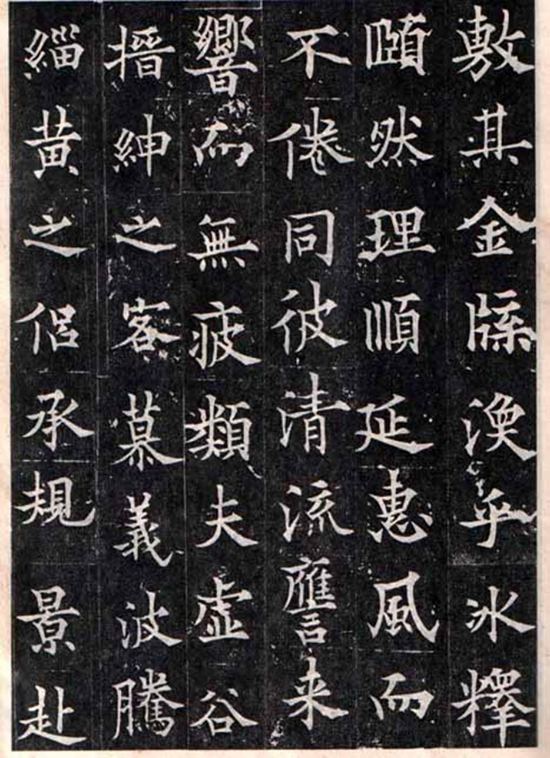 敷其金牒渙乎冰釋
頤然理順延惠風而
不倦同彼清流譍来
響而無疲類夫虛谷
搢紳之客慕義波騰
緇黄之侶承規景赴